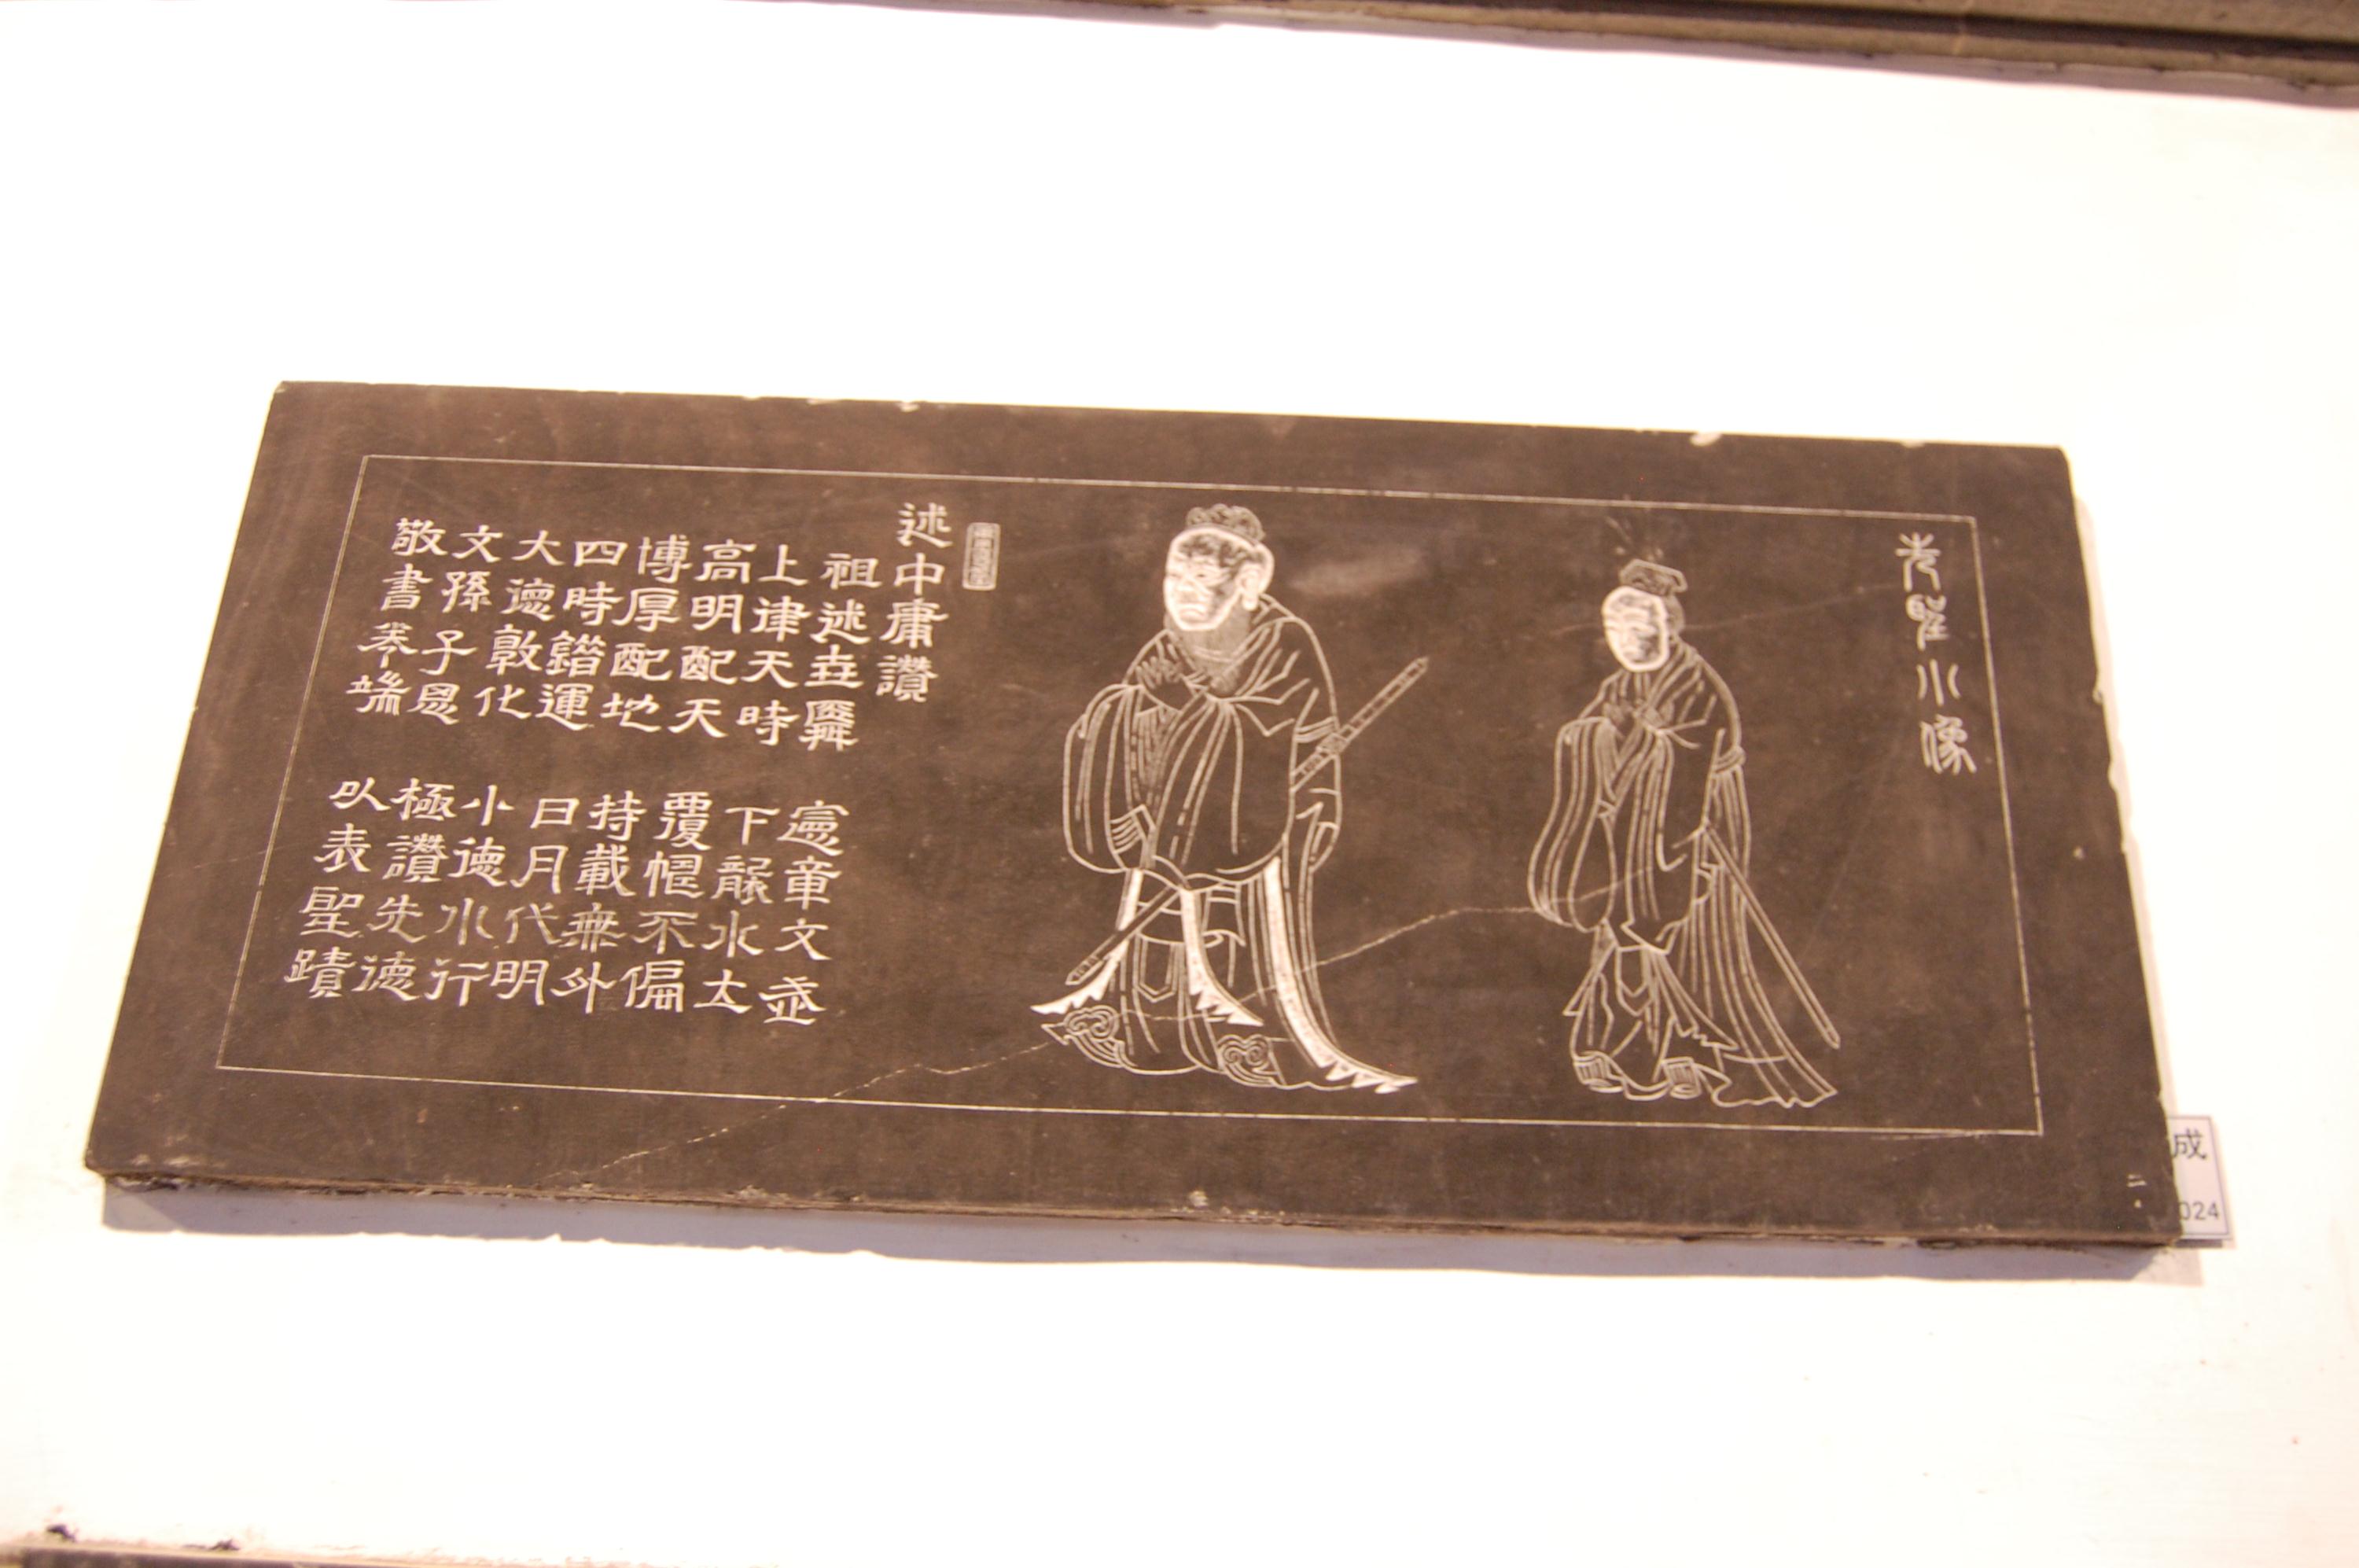 先聖小像
述中庸讚
祖述堯舜 憲章文武
上律天時 下襲水土
高明配天 覆不偏
博厚配地 持載無外
四時錯運 日月代明
大德敦化 小德水行
文孫子思 極讚先德
敬書卷端 以表聖蹟
二
成
024